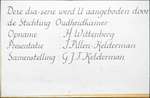 Deze dia-serie werd U aangeboden door
de Stichting Oudheidkamer
Opname : H. Wittenberg
Presentatie : J. Pillen-Kelderman
Samenstelling : G.J.J. Kelderman